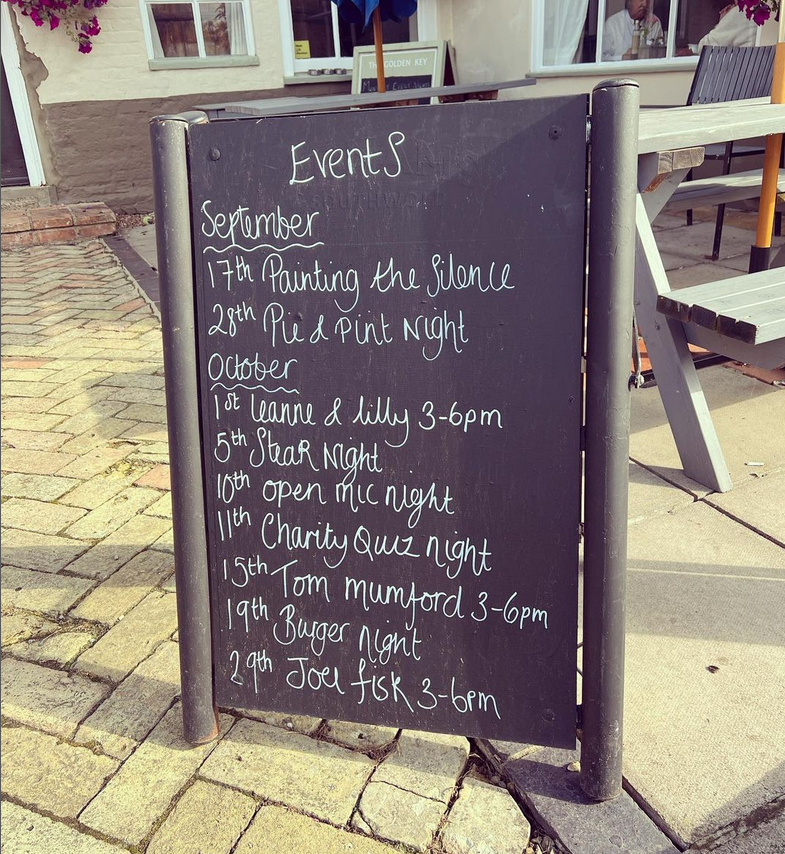 THE GOLDEN KEY
Events
September
17th Painting the Silence
28th Pie & Pint Night
October
1st leanne & lilly 3-6pm
5th Steak Night
10th open mic night
11th Charity Quiz night
15th Tom mumford 3-6pm
19th Burger night
29th Joel fisk 3-6pm